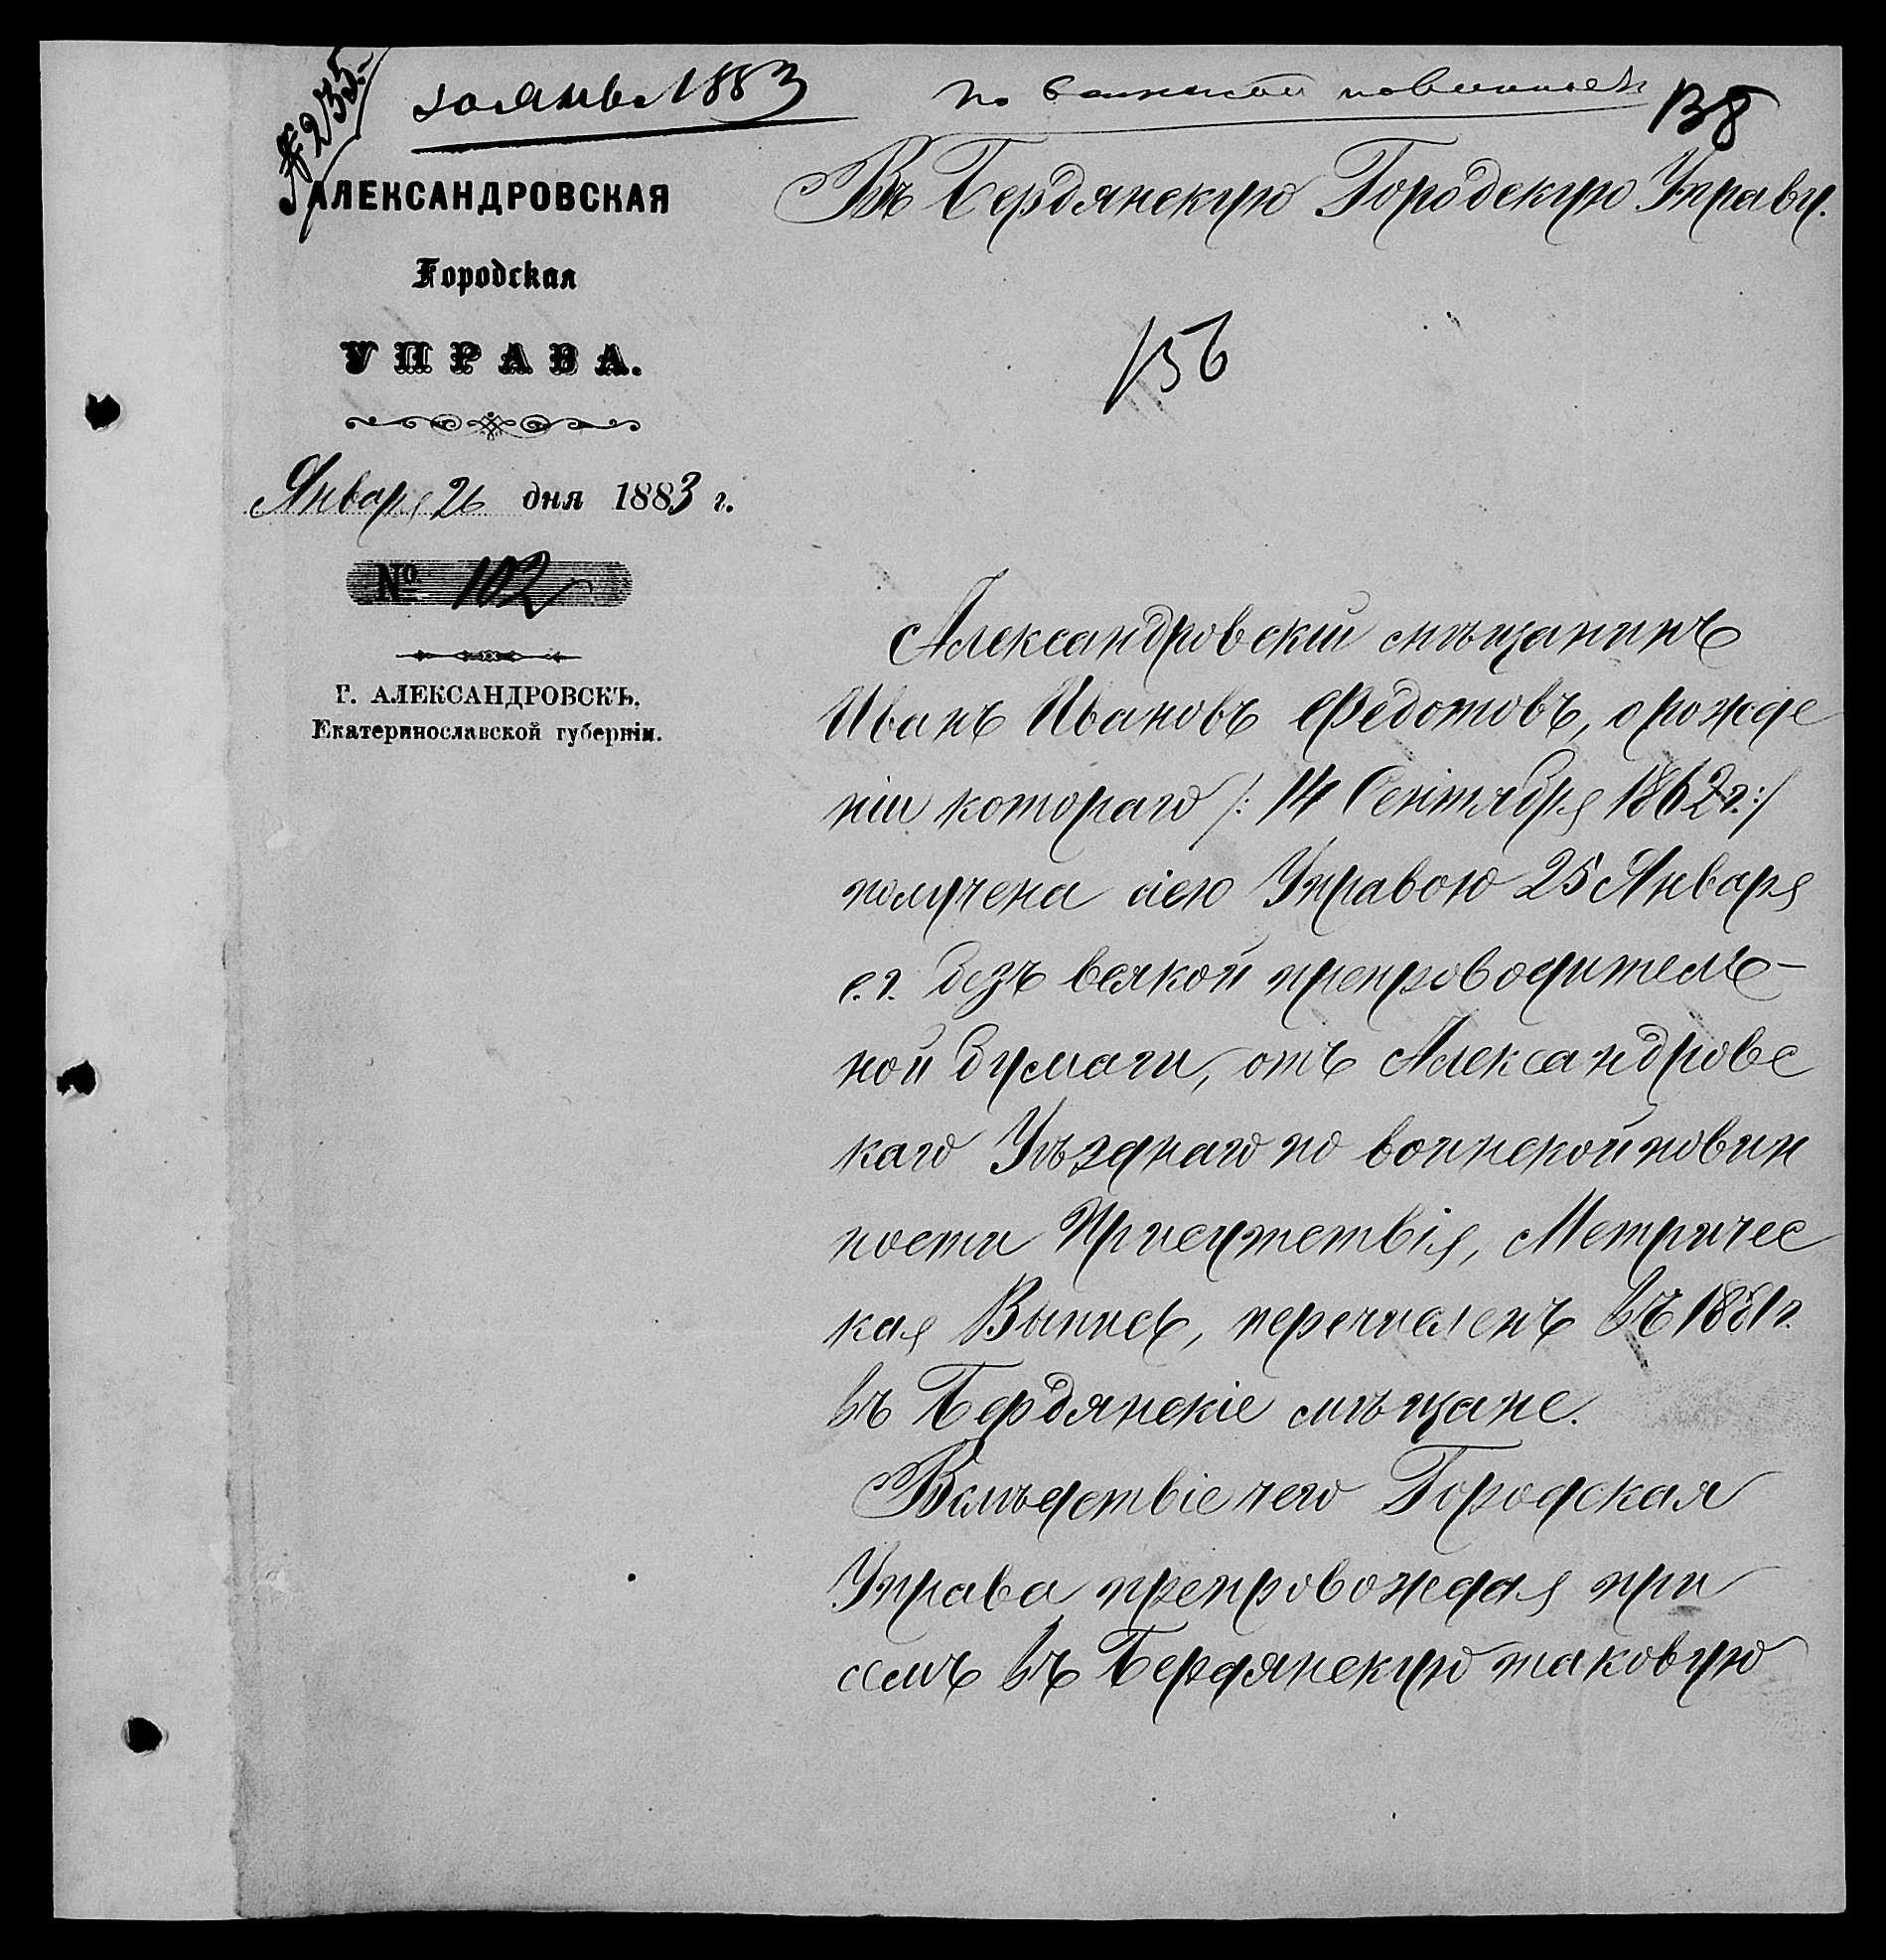 № 235.
30 Янв. 1883
по воинской повинности
138
АЛЕКСАНДРОВСКАЯ
Городская
УПРАВА.
Января 26 дня 1883 г.
№ 102
Г. АЛЕКСАНДРОВСКЪ,
Екатеринославской губерніи.
Въ Бердянскую Городскую Управу.
156
Александровскій мѣщанинъ
Иванъ Ивановъ Федотовъ, о рожде
ніи котораго /: 14 Сентября 1862 г.:/
получена сею Управою 25 Января
с.г. безъ всякой препроводитель-
ной бумаги, отъ Александровс
каго Уѣзднаго по воинской повин
ности Присутствія, Метричес
кая Выпись, перечисленъ въ 1881 г.
въ Бердянскіе мѣщане.
Вслѣдствіе чего Городская
Управа препровождая при
семъ въ Бердянскую таковую